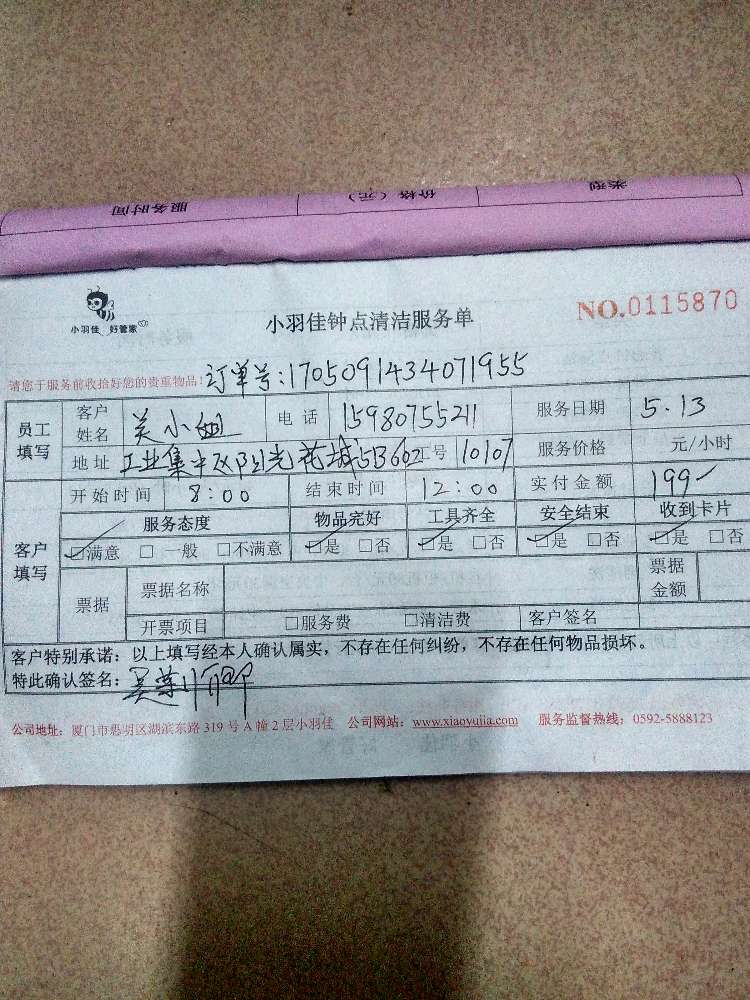 服务时间 价格（元） 类型
小羽佳 好管家
小羽佳钟点清洁服务单
NO.0115870
请您于服务前收拾好您的贵重物品！ 订单号:1705091434071955
员工填写 客户姓名 吴小姐 电话 15980755211 服务日期 5.13
地址 工业集中区阳光花城5B602 工号 10107 服务价格 元/小时
客户填写 开始时间 8:00 结束时间 12:00 实付金额 199
服务态度 物品完好 工具齐全 安全结束 收到卡片
☑满意 □一般 □不满意 ☑是 □否 ☑是 □否 ☑是 □否 ☑是 □否
票据 票据名称 票据金额
开票项目 □服务费 □清洁费 客户签名
客户特别承诺：以上填写经本人确认属实，不存在任何纠纷，不存在任何物品损坏。
特此确认签名：吴
公司地址：厦门市思明区湖滨东路319号A幢2层小羽佳 公司网站：www.xiaoyujia.com 服务监督热线：0592-5888123